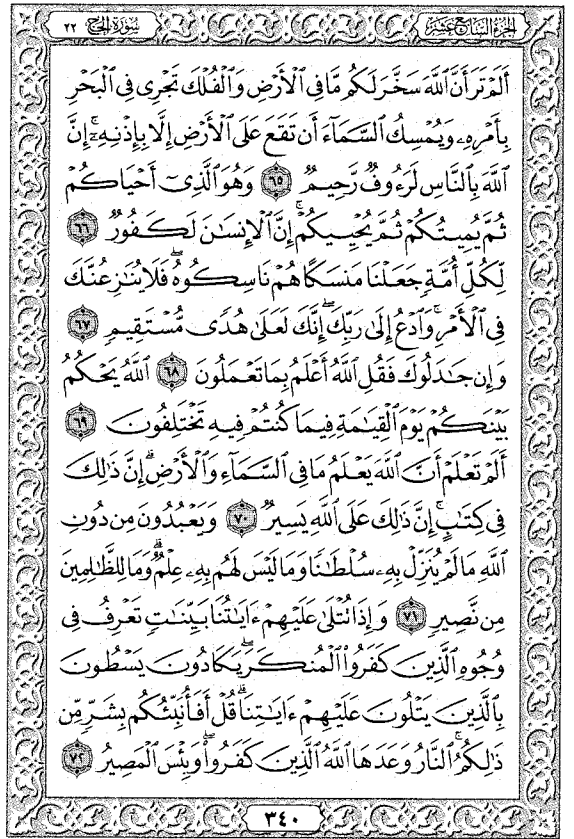 الجزء السابع عشر
سورة الحج ٢٢
أَلَمْ تَرَ أَنَّ ٱللَّهَ سَخَّرَ لَكُم مَّا فِى ٱلْأَرْضِ وَٱلْفُلْكَ تَجْرِى فِى ٱلْبَحْرِ
بِأَمْرِهِۦ وَيُمْسِكُ ٱلسَّمَآءَ أَن تَقَعَ عَلَى ٱلْأَرْضِ إِلَّا بِإِذْنِهِۦٓ ۗ إِنَّ
ٱللَّهَ بِٱلنَّاسِ لَرَءُوفٌ رَّحِيمٌ ٦٥ وَهُوَ ٱلَّذِىٓ أَحْيَاكُمْ
ثُمَّ يُمِيتُكُمْ ثُمَّ يُحْيِيكُمْ ۗ إِنَّ ٱلْإِنسَٰنَ لَكَفُورٌ ٦٦
لِّكُلِّ أُمَّةٍ جَعَلْنَا مَنسَكًا هُمْ نَاسِكُوهُ ۖ فَلَا يُنَٰزِعُنَّكَ
فِى ٱلْأَمْرِ ۚ وَٱدْعُ إِلَىٰ رَبِّكَ ۖ إِنَّكَ لَعَلَىٰ هُدًى مُّسْتَقِيمٍ ٦٧
وَإِن جَٰدَلُوكَ فَقُلِ ٱللَّهُ أَعْلَمُ بِمَا تَعْمَلُونَ ٦٨ ٱللَّهُ يَحْكُمُ
بَيْنَكُمْ يَوْمَ ٱلْقِيَٰمَةِ فِيمَا كُنتُمْ فِيهِ تَخْتَلِفُونَ ٦٩
أَلَمْ تَعْلَمْ أَنَّ ٱللَّهَ يَعْلَمُ مَا فِى ٱلسَّمَآءِ وَٱلْأَرْضِ ۗ إِنَّ ذَٰلِكَ
فِى كِتَٰبٍ ۚ إِنَّ ذَٰلِكَ عَلَى ٱللَّهِ يَسِيرٌ ٧٠ وَيَعْبُدُونَ مِن دُونِ
ٱللَّهِ مَا لَمْ يُنَزِّلْ بِهِۦ سُلْطَٰنًا وَمَا لَيْسَ لَهُم بِهِۦ عِلْمٌ ۗ وَمَا لِلظَّٰلِمِينَ
مِن نَّصِيرٍ ٧١ وَإِذَا تُتْلَىٰ عَلَيْهِمْ ءَايَٰتُنَا بَيِّنَٰتٍ تَعْرِفُ فِى
وُجُوهِ ٱلَّذِينَ كَفَرُوا۟ ٱلْمُنكَرَ ۖ يَكَادُونَ يَسْطُونَ
بِٱلَّذِينَ يَتْلُونَ عَلَيْهِمْ ءَايَٰتِنَا ۗ قُلْ أَفَأُنَبِّئُكُم بِشَرٍّ مِّن
ذَٰلِكُمُ ۗ ٱلنَّارُ وَعَدَهَا ٱللَّهُ ٱلَّذِينَ كَفَرُوا۟ ۖ وَبِئْسَ ٱلْمَصِيرُ ٧٢
٣٤٠